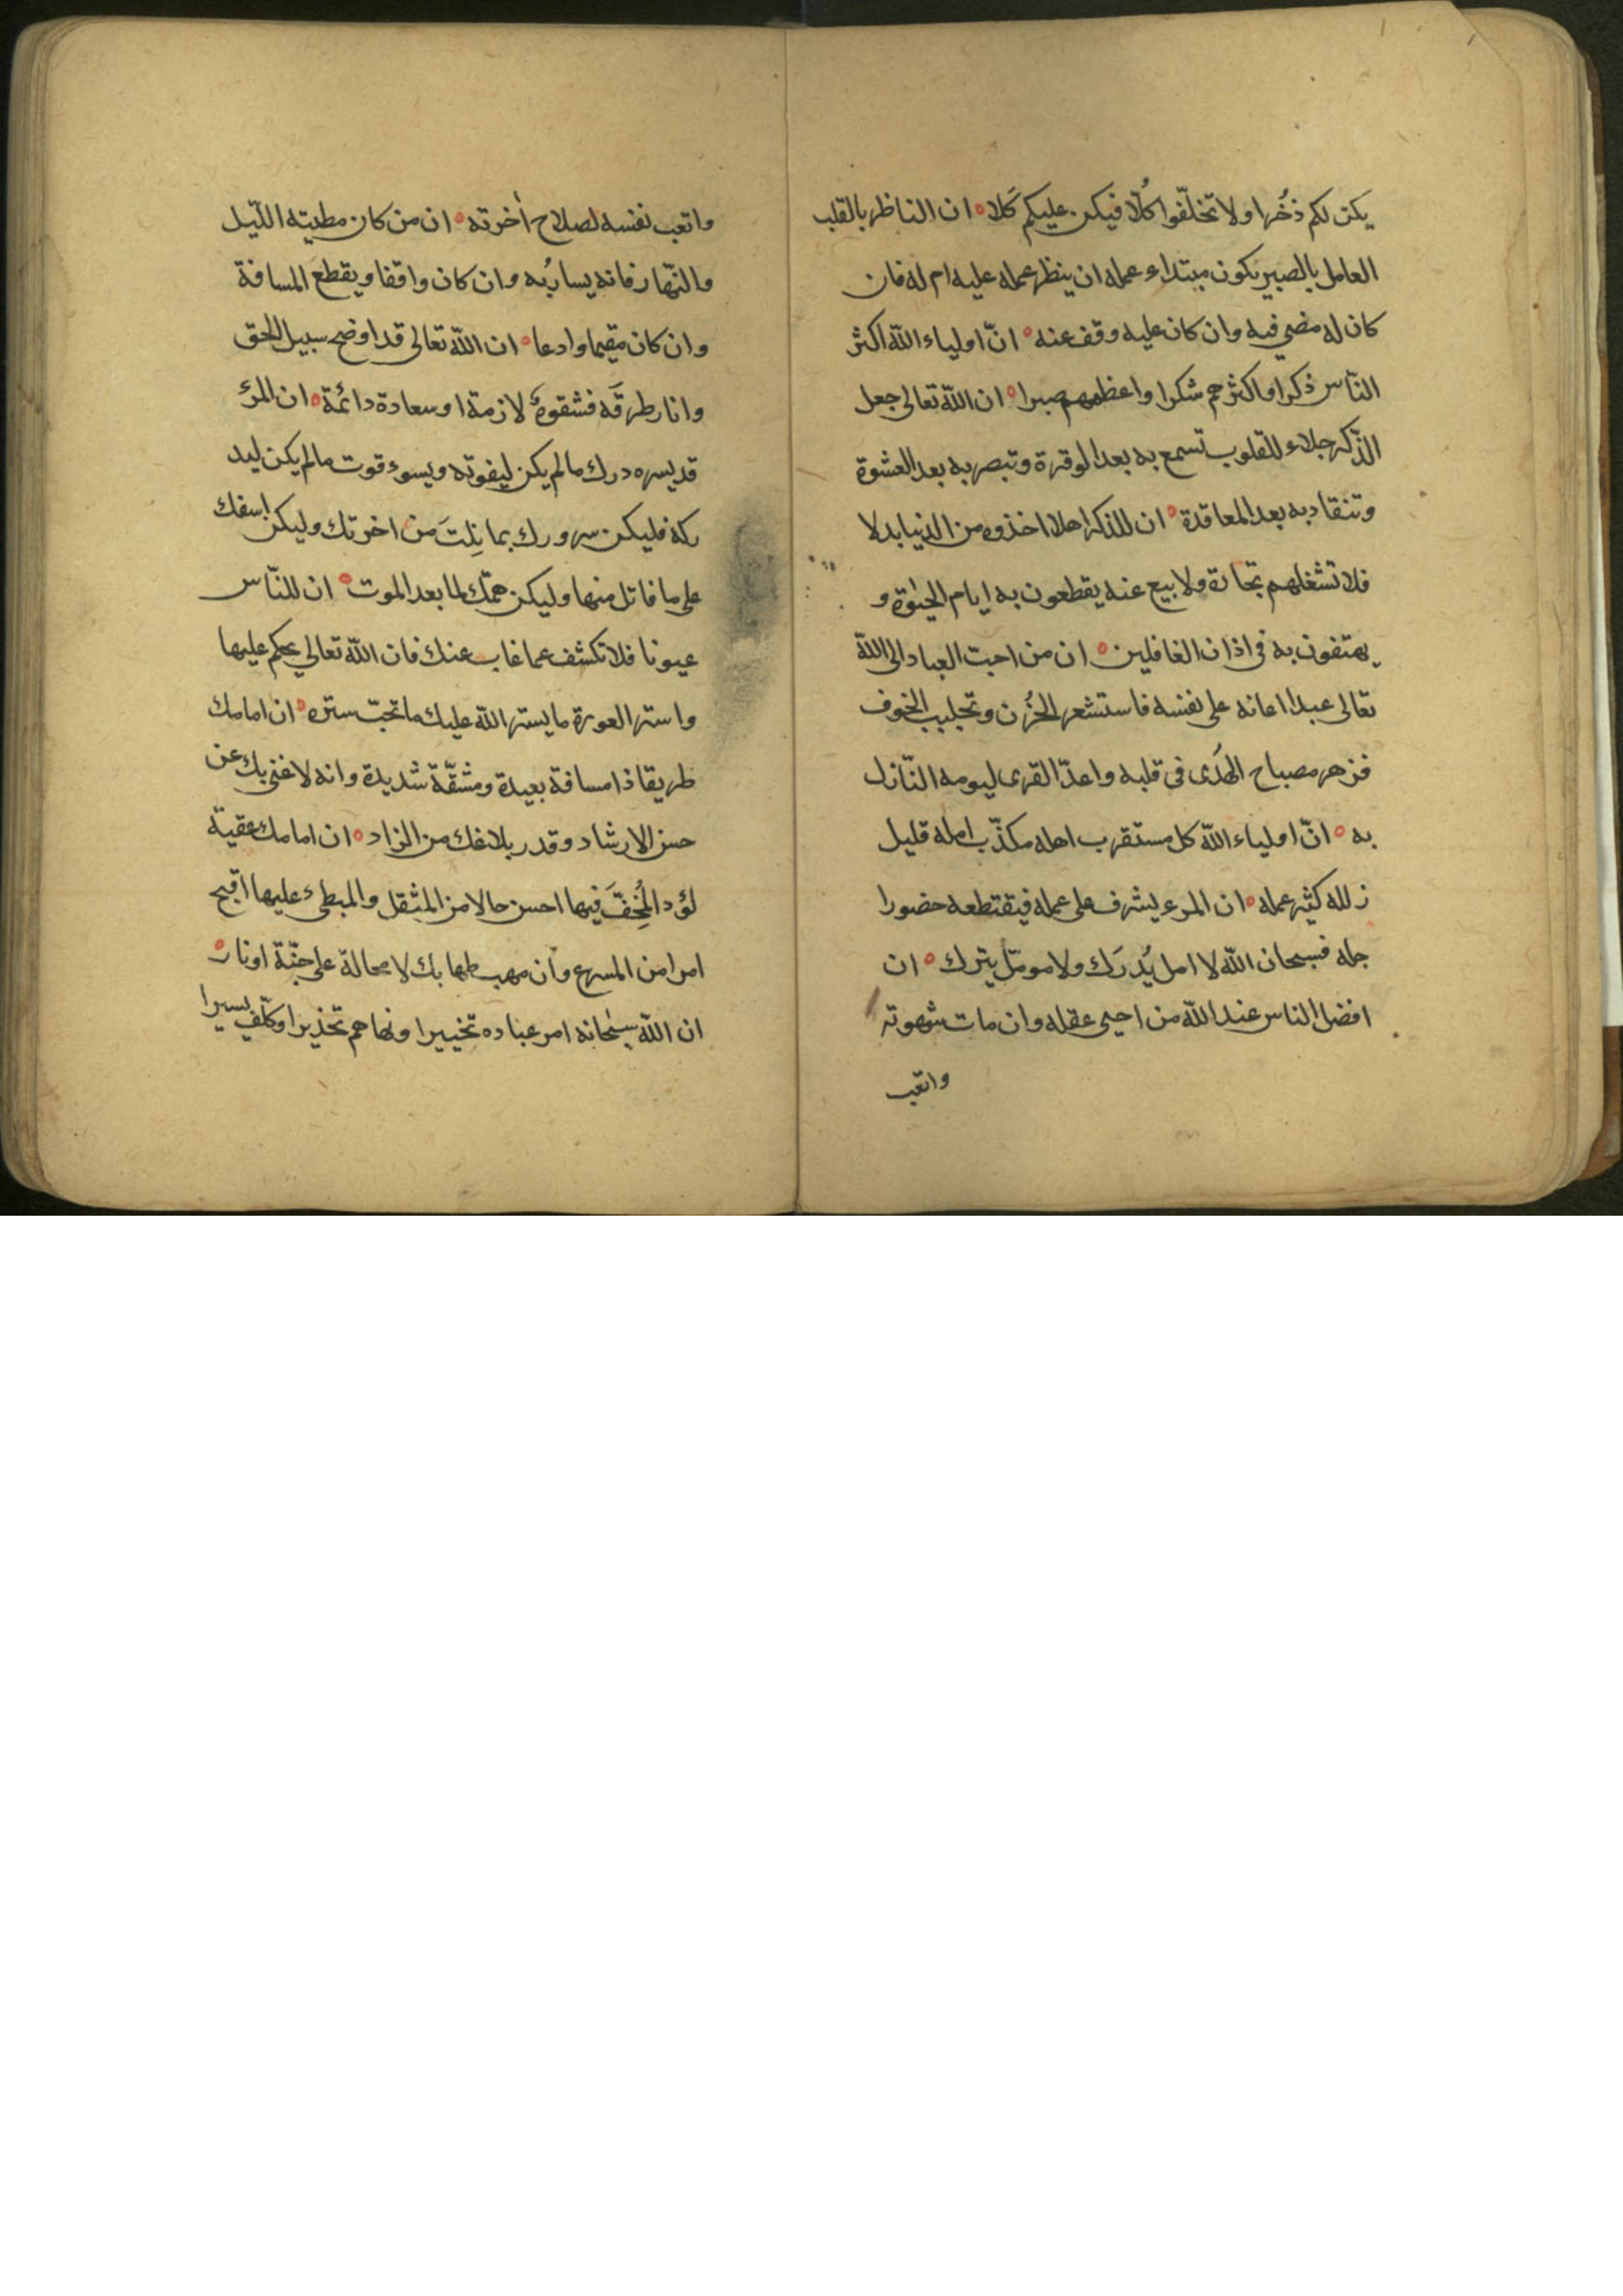 يكن لكم ذخُرا ولا تخلّفوا كُلّا فيكن عليكم كَلا ه ان الناظر بالقلب
العامل بالصبر يكون مبتداء عمله ان ينظر عمله عليه ام له فان
كان له مضى فيه وان كان عليه وقف عنه ه انّ اولياء الله اكثر
النّاس ذكرا واكثرهم شكرا واعظمهم صبرا ه ان الله تعالى جعل
الذّكر جلاء للقلوب تسمع به بعد الوقرة وتبصر به بعد العشوة
وتنقاد به بعد المعاقدة ه ان للذكر اهلا اخذوه من الدنيا بدلا
فلا تشغلهم تجارة ولا بيع عنه يقطعون به ايام الحيوة و
يهتفون به فى اذان الغافلين ه ان من احبّ العباد الى الله
تعالى عبدا اعانه على نفسه فاستشعر الحُزن وتجلبب الخوف
فزهر مصباح الهُدَى فى قلبه واعدّ القرى ليومه النّازل
به ه انّ اولياء الله كل مستقرب اجله مكذّب امله قليل
زلله كثير عمله ه ان المرء ليشرف على عمله فيقتطعه حضورا
جله فسبحان الله لا امل يُدرَك ولا مومّل يترك ه ان
افضل الناس عند الله من احيى عقله وان مات شهوته
واتعب
واتعب نفسه لصلاح أخرته ه ان من كان مطيته اللّيل
والنّهار فانه يسارُبه وان كان واقفا ويقطع المسافة
وان كان مقيما وادعا ه ان الله تعالى قد اوضح سبيل الحق
وانار طرقَه فشقوةٌ لازمة او سعادة دائمة ه ان المرئ
قد يسره درك ما لم يكن ليفوته ويسوء قوت ما لم يكن ليد
ركه فليكن سرورك بما نِلتَ من اخرتك وليكن اسفك
على ما فاتك منها وليكن همّك لما بعد الموت ه ان للنّاس
عيونا فلا تكشف عما غاب عنك فان الله تعالى يحكم عليها
واستر العورة ما يستر الله عليك ما تحبّ ستره ه ان امامك
طريقا ذا مسافة بعيدة ومشقّة شديدة وانه لا غنى بك عن
حسن الارشاد وقدر بلاغك من الزاد ه ان امامك عقبة
لؤد المُخِفَّ فيها احسن حالا من المثقل والمبطىء عليها اقبح
امرا من المسرع وأن مهبطها بك لا محالة على جنّة او نار ه
ان الله سبحانه امر عباده تخييرا ونهاهم تحذيرا وكلّف يسيرا